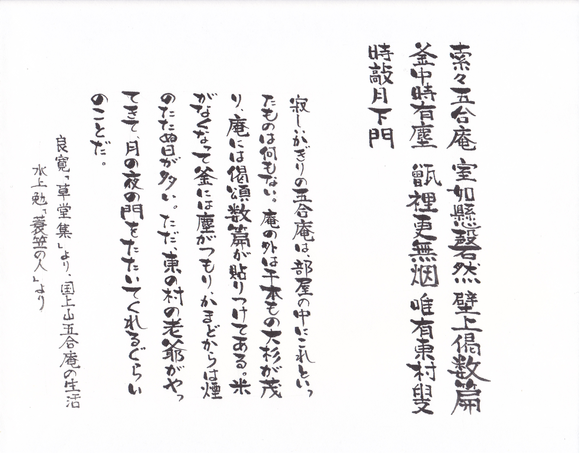 索々五合庵 室如懸磬然 壁上偈数篇
釜中時有塵 甑裡更無烟 唯有東村叟
時敲月下門
寂しいかぎりの五合庵は、部屋の中にこれといっ
たものは何もない。庵の外は千本もの大杉が茂
り、庵には偈頌数篇が貼りつけてある。米
がなくなって釜には塵がつもり、かまどからは煙
のたたぬ日が多い。ただ、東の村の老爺がやっ
てきて、月の夜の門をたたいてくれるぐらい
のことだ。
良寛「草堂集」より、国上山五合庵の生活
水上勉「蓑笠の人」より